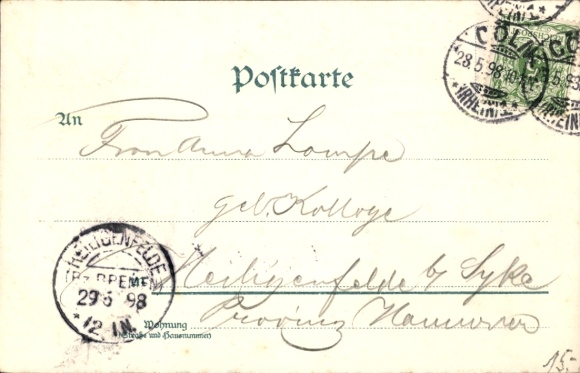 Postkarte
CÖLN
28.5.98.10-11
(RHEIN) 1.
An
Frau Anna Lampe
geb. Kolloge
Heiligenfelde b/ Syke
Provinz Hannover
Wohnung
(Straße und Hausnummer)
HEILIGENFELDE
(Bz. BREMEN)
29 5 98
12. 1N.
15.-